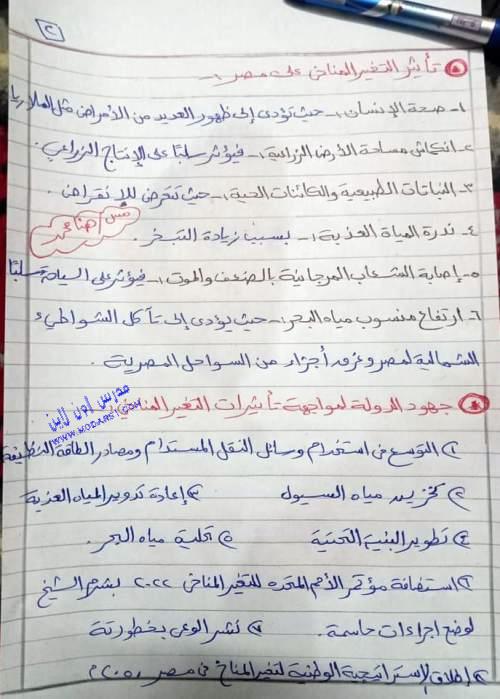 ٢
تأثير التغير المناخى على مصر :-
١- صحة الإنسان :- حيث تؤدى إلى ظهور العديد من الأمراض مثل الملاريا
٢- انكماش مساحة الأرض الزراعية :- فيؤثر سلبًا على الإنتاج الزراعي.
٣- النباتات الطبيعية والكائنات الحية :- حيث تتعرض للإنقراض.
٤- ندرة المياة العذبة :- بسبب زيادة التبخر.
مس هناء
٥- إصابة الشعاب المرجانية بالضعف والموت :- فيؤثر على السياحة سلبًا
٦- ارتفاع منسوب مياه البحر :- حيث يؤدى إلى تآكل الشواطيء
الشمالية لمصر وغرق أجزاء من السواحل المصرية.
جهود الدولة لمواجهة تأثيرات التغير المناخى
مدرس اون لاين
www.modars1.com
١ التوسع فى استخدام وسائل النقل المستدام ومصادر الطاقة النظيفة
٢ تخزين مياه السيول ٣ إعادة تدوير المياه العذبة
٤ تطوير البنية التحتية ٥ تحلية مياه البحر.
٦ استضافة مؤتمر الأمم المتحده للتغير المناخى ٢٠٢٢ بشرم الشيخ
لوضع اجراءات حاسمة. ٧ نشر الوعى بخطورتة
٨ إطلاق الإستراتيجية الوطنية لتغير المناخ فى مصر ٢٠٥٠م